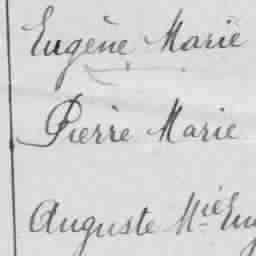 Eugène Marie
Pierre Marie
Auguste Mie Eug